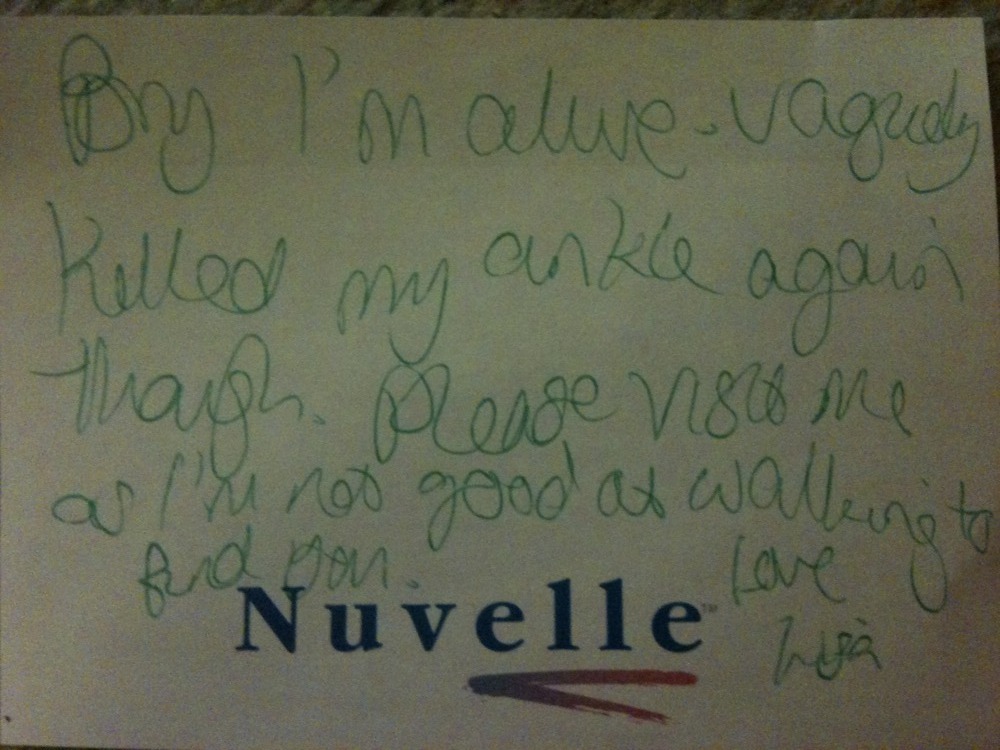 Bry I'm alive - vaguely
Killed my ankle again
though. Please visit me
as I'm not good at walking to
find you.
Love
Nuvelle™